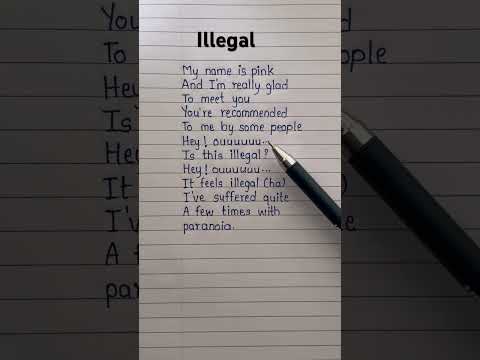 Illegal
My name is pink
And I'm really glad
To meet you
You're recommended
To me by some people
Hey! ouuuuuu...
Is this illegal?
Hey! ouuuuuu...
It feels illegal (ha)
I've suffered quite
A few times with
paranoia.